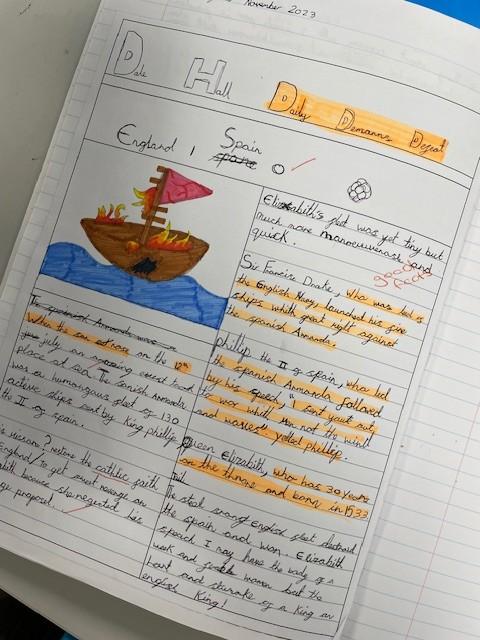 November 2023
Dale Hall Daily Demanns Degeat
England 1 Spain spane 0
The spanish Armada was a
When the sun arose on the 12th
july an amazing event took
place at sea. The Sanish Armada
was a humangous fleet of 130
active ships sent by King phillip
the II of spain.
is visson? restore the catholic faith
England/to get sweet revenge on
because she neglected his
proposal.
Elizabeth's fleet was yet tiny but
much more manoeuverash and
quick.
good facts
Sir Francise Drake, who was led is
the English Navy, launched his fire
ships whith great might against
the spanish Armanda.
phillip the II of spain, who led
the spanish Armanda follaved
by his speed, "I sent you to out
to war whith men not the wind
and waves" yelled phillip.
Queen Elizabeth, who has 30 years
on the throne and born in 1533
The steal strong English fleet
the spain and won. Elizabeth
speach I may have the body of a
weak and feeble women but the
heart and stumake of a King an
english King!